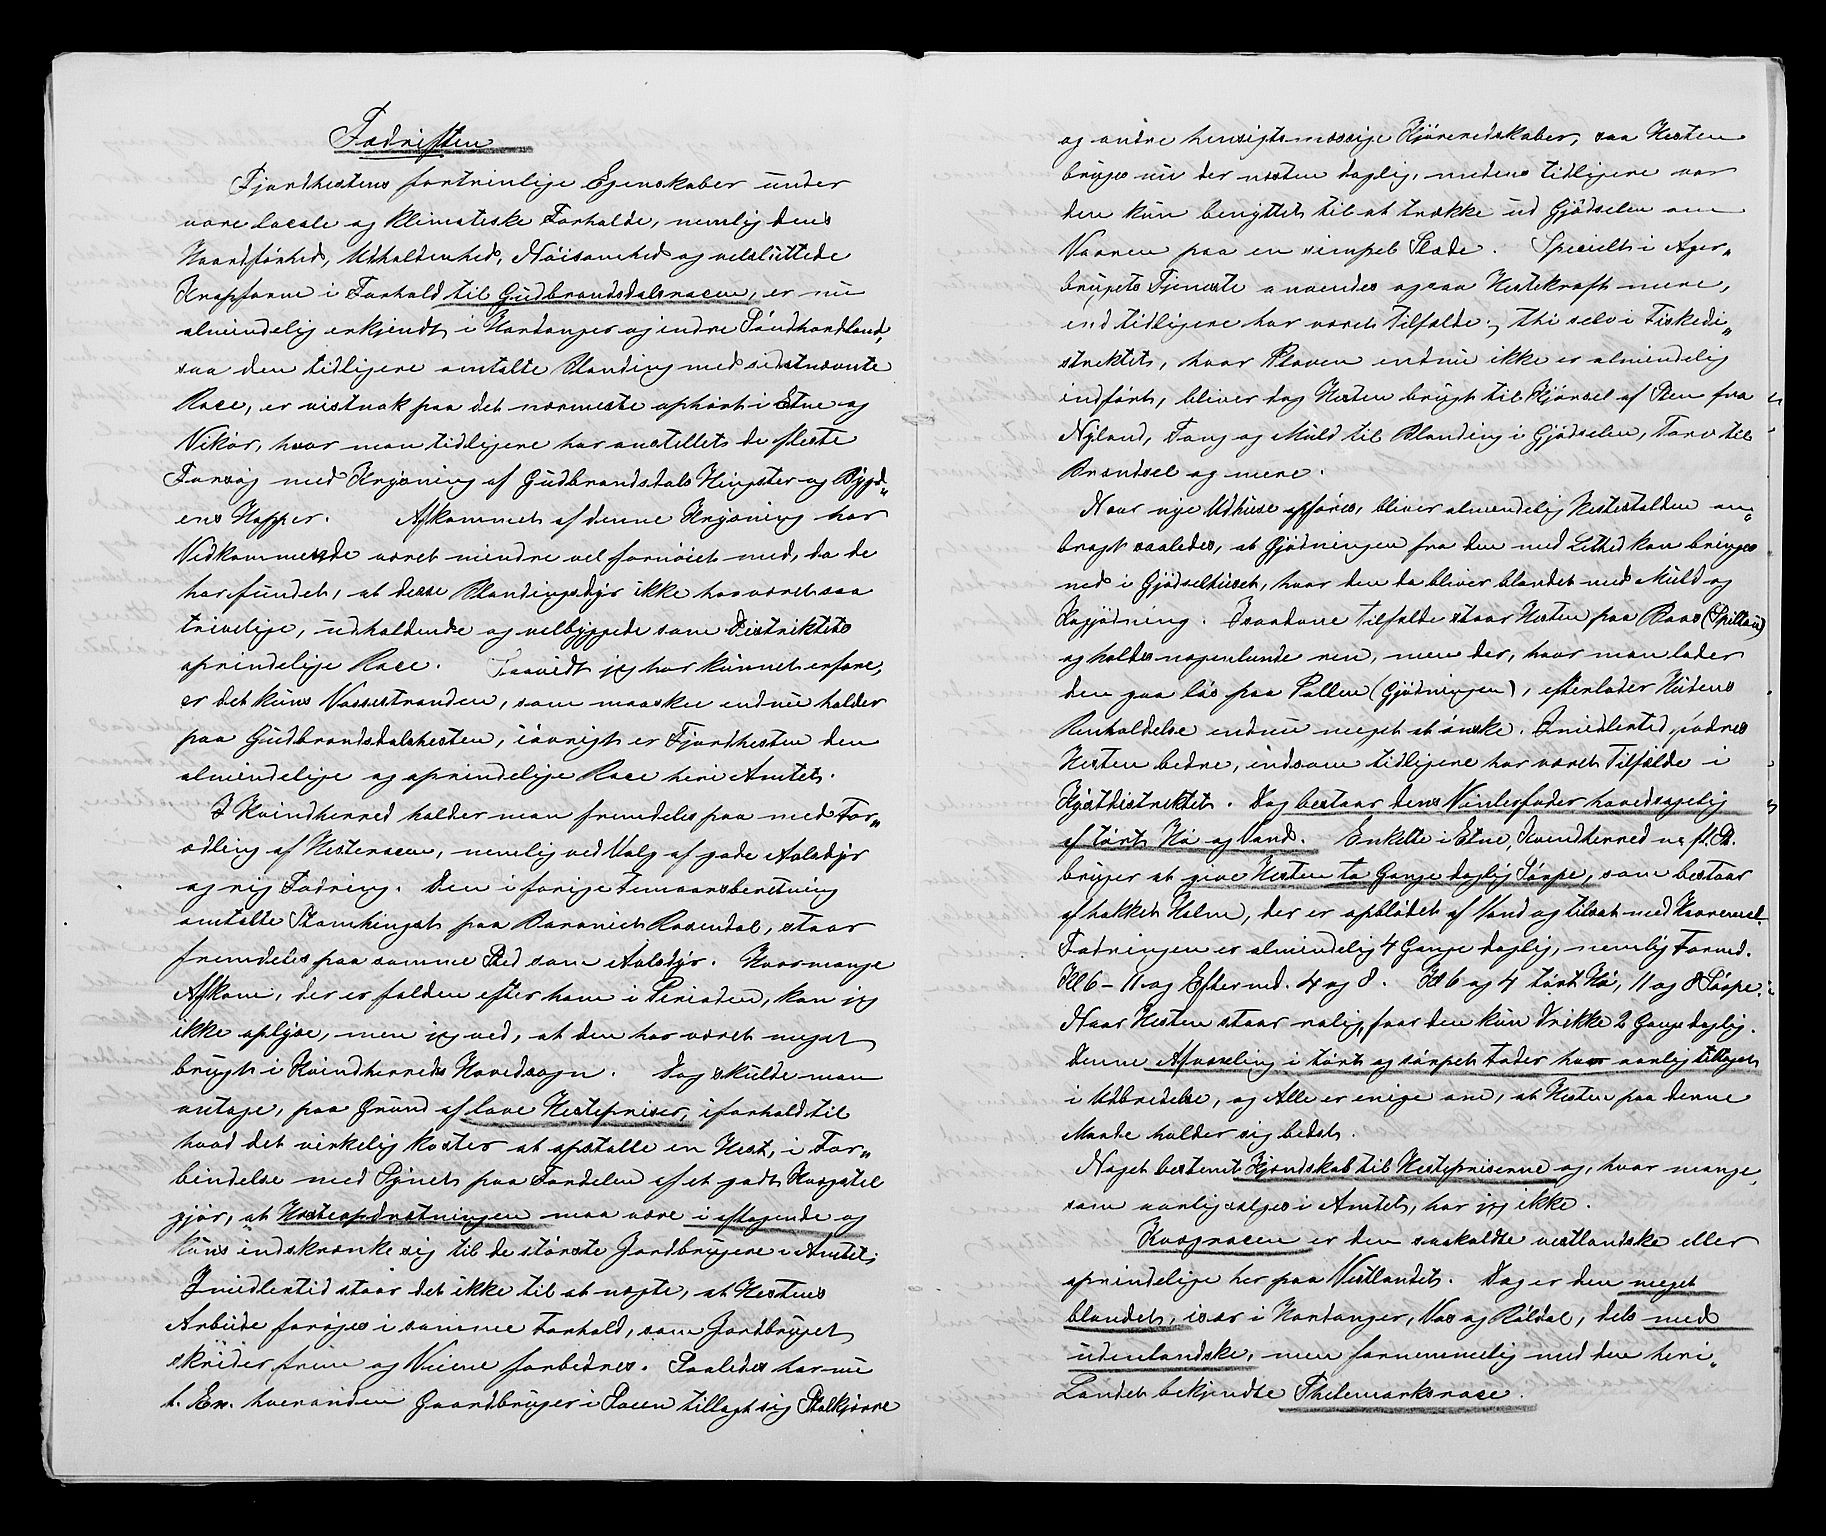 Fædriften
Fjordhestens fortrinlige Egenskaber under
vore Locale og klimatiske Forholde, nemlig dens
Haardførhed, Udholdenhed, Nøisomhed og velsluttede
Kropform i Forhold til Gudbrandsdalsracen, er nu
almindelig erkjendt i Hardanger og indre Søndhordland,
saa den tidligere omtalte Blanding med sidstnævnte
Race, er vistnok paa det nærmeste ophørt i Etne og
Vikør, hvor man tidligere har anstillet de fleste
Forsøg med Krysning af Gudbrandsdals Hingster og Bygd„
ens Hopper. Afkommet af denne Krysning har
Vedkommende været mindre vel fornøiet med, da de
har fundet, at disse Blandingsdyr ikke har været saa
trivelige, udholdende og velbyggede som Distriktets
oprindelige Race. Saavidt jeg har kunnet erfare,
er det kuns Vossestranden, som maaskee endnu holder
paa Gudbrandsdalshesten, iøvrigt er Fjordhesten den
almindelige og oprindelige Race heri Amtet.
I Kvindherred holder man fremdeles paa med For„
ædling af Hesteracen, nemlig ved Valg af gode Avlsdyr
og rig Fodring. Den i forige Femaarsberetning
omtalte Stamhingst paa Baroniet Rosendal, staar
fremdeles paa samme Sted som Avlsdyr. Hvor mange
Afkom, der er falden efter ham i Perioden, kan jeg
ikke oplyse, men jeg ved, at den har været meget
brugt i Kvindherreds Hovedsogn. Dog skulde man
antage, paa Grund af lave Hestepriser, iforhold til
hvad det virkelig koster at opstalle en Hest, i For„
bindelse med Synet paa Fordelen af et godt Kvægstel
gjør, at Hesteopdrætningen maa være i aftagende og
kuns indskrænke sig til de største Jordbrugere i Amtet.
Imidlertid staar det ikke til at nægte, at Hestens
Arbeide forøges i samme Forhold, som Jordbruget
skrider frem og Veiene forbedres. Saaledes har nu
t. Ex. hveranden Gaardbruger i Soen tillagt sig Stolkjærre
og andre hensigtsmæssige Kjøreredskaber, saa Hesten
bruges nu der næsten daglig, medens tidligere var
den kun benyttet til at trække ud Gjødselen om
Vaaren paa en simpel Slæde. Specielt i Ager„
brugets Tjeneste anvendes ogsaa Hestekraft mere,
end tidligere har været Tilfælde; thi selv i Fiskedi„
striktet, hvor Ploven endnu ikke er almindelig
indført, bliver dog Hesten brugt til Kjørsel af Sten fra
Nyland, Tang og Muld til Blanding i Gjødselen, Torv til
Brændsel og mere.
Naar nye Udhuse opføres, bliver almindelig Hestestalden an„
bragt saaledes, at Gjødningen fra den med Lethed kan bringes
ned i Gjødselhuset, hvor den da bliver blandet med Muld og
Kogjødning. I saadane Tilfælde staar Hesten paa Baas (Spiltau)
og holdes nogenlunde ren, men der, hvor man lader
den gaa løs paa Tallen (Gjødningen), efterlader Hudens
Renholdelse endnu meget at ønske. Imidlertid, fodres
Hesten bedre, indsom tidligere har været Tilfælde i
Kystdistriktet. Dog bestaar dens Vinterfoder hovedsagelig
af tørt Hø og Vand. Enkelte i Etne, Kvindherred og fl. St.
bruger at give Hesten to Gange daglig Sørpe, som bestaar
af hakket Halm, der er opblødet af Vand og tilsat med Havremel.
Fodringen er almindelig 4 Gange daglig, nemlig Formd.
Kl 6 – 11 og Eftermd. 4 og 8. Kl 6 og 4 tørt Hø, 11 og 8 Sørpe.
Naar Hesten staar rolig, faar den kun Drikke 2 Gange daglig.
Denne Afvexeling i tørt og sørpet Foder har aarlig tiltaget
i Udbredelse, og Alle er enige om, at Hesten paa denne
Maade holder sig bedst.
Noget bestemt Kjendskab til Hestepriserne og, hvor mange,
som aarlig sælges i Amtet, har jeg ikke.
Kvægracen er den saakaldte vestlandske eller
oprindelige her paa Vestlandet. Dog er den meget
blandet, især i Hardanger, Vos og Røldal, dels med
udenlandske, men fornemmelig med den heri„
Landet bekjendte Thelemarksrace.